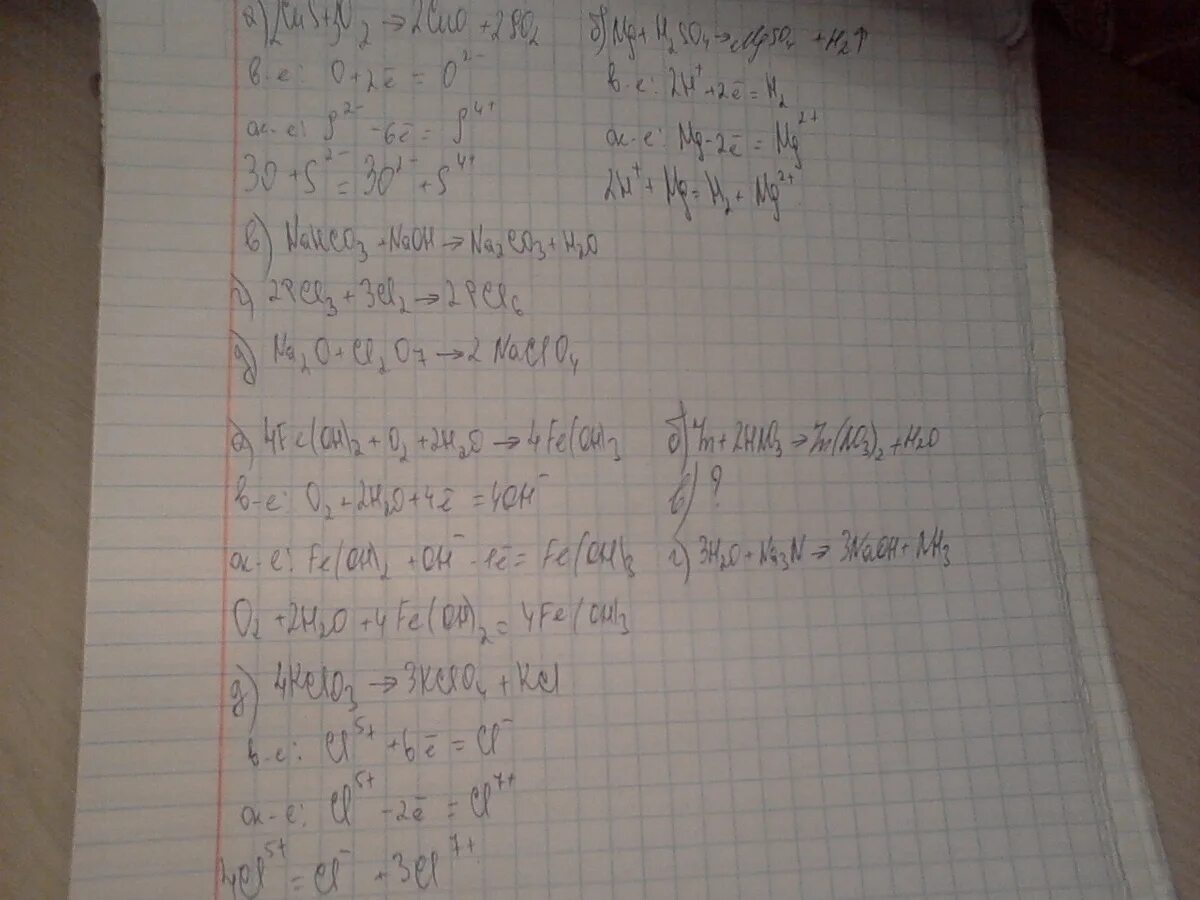 а) 2CuS+3O₂ → 2CuO + 2SO₂
в-е: O+2ē = O²⁻
ок-е: S²⁻ -6ē = S⁴⁺
3O + S²⁻ = 3O²⁻ + S⁴⁺
б) Mg + H₂SO₄ → MgSO₄ + H₂↑
в-е: 2H⁺ +2ē = H₂
ок-е: Mg-2ē = Mg²⁺
2H⁺ + Mg = H₂ + Mg²⁺
в) NaHCO₃ + NaOH → Na₂CO₃ + H₂O
г) 2PCl₃ + 3Cl₂ → 2PCl₆
д) Na₂O + Cl₂O₇ → 2 NaClO₄
а) 4Fe(OH)₂ + O₂ + 2H₂O → 4Fe(OH)₃
в-е: O₂ + 2H₂O + 4ē = 4OH⁻
ок-е: Fe(OH)₂ + OH⁻ - 1ē = Fe(OH)₃
O₂ + 2H₂O + 4Fe(OH)₂ = 4Fe(OH)₃
б) Zn + 2HNO₃ → Zn(NO₃)₂ + H₂O
в) ?
г) 3H₂O + Na₃N → 3NaOH + NH₃
д) 4KClO₃ → 3KClO₄ + KCl
в-е: Cl⁵⁺ + 6ē = Cl⁻
ок-е: Cl⁵⁺ - 2ē = Cl⁷⁺
4Cl⁵⁺ = Cl⁻ + 3Cl⁷⁺